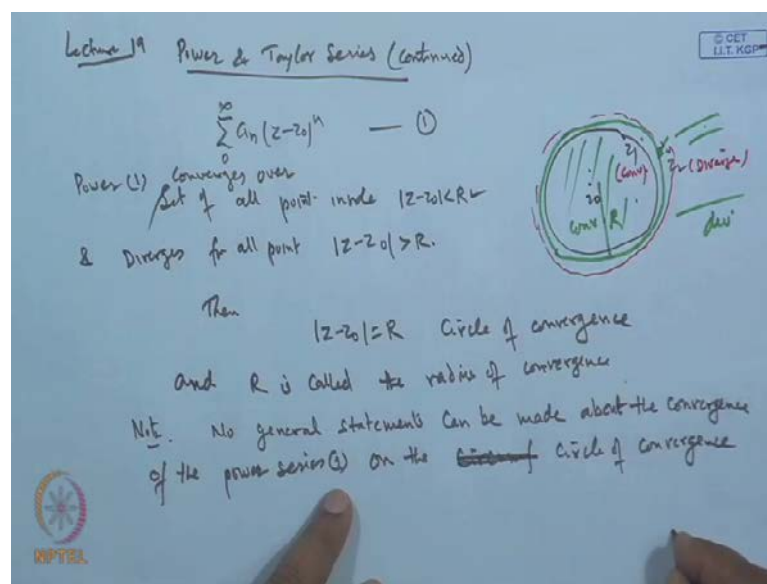 Lecture 19 Power & Taylor Series (Continued)
© CET
I.I.T. KGP
∞
∑ an (z-z0)^n — ①
0
Power (1) converges over
Set of all point inside |z-z0|<R
& Diverges for all point |z-z0|>R.
z1
(conv)
z2 (Diverges)
z0
conv R
div
Then
|z-z0|=R Circle of convergence
and R is called the radius of convergence
Note. No general statements can be made about the convergence
of the power series (1) on the circle of convergence
NPTEL